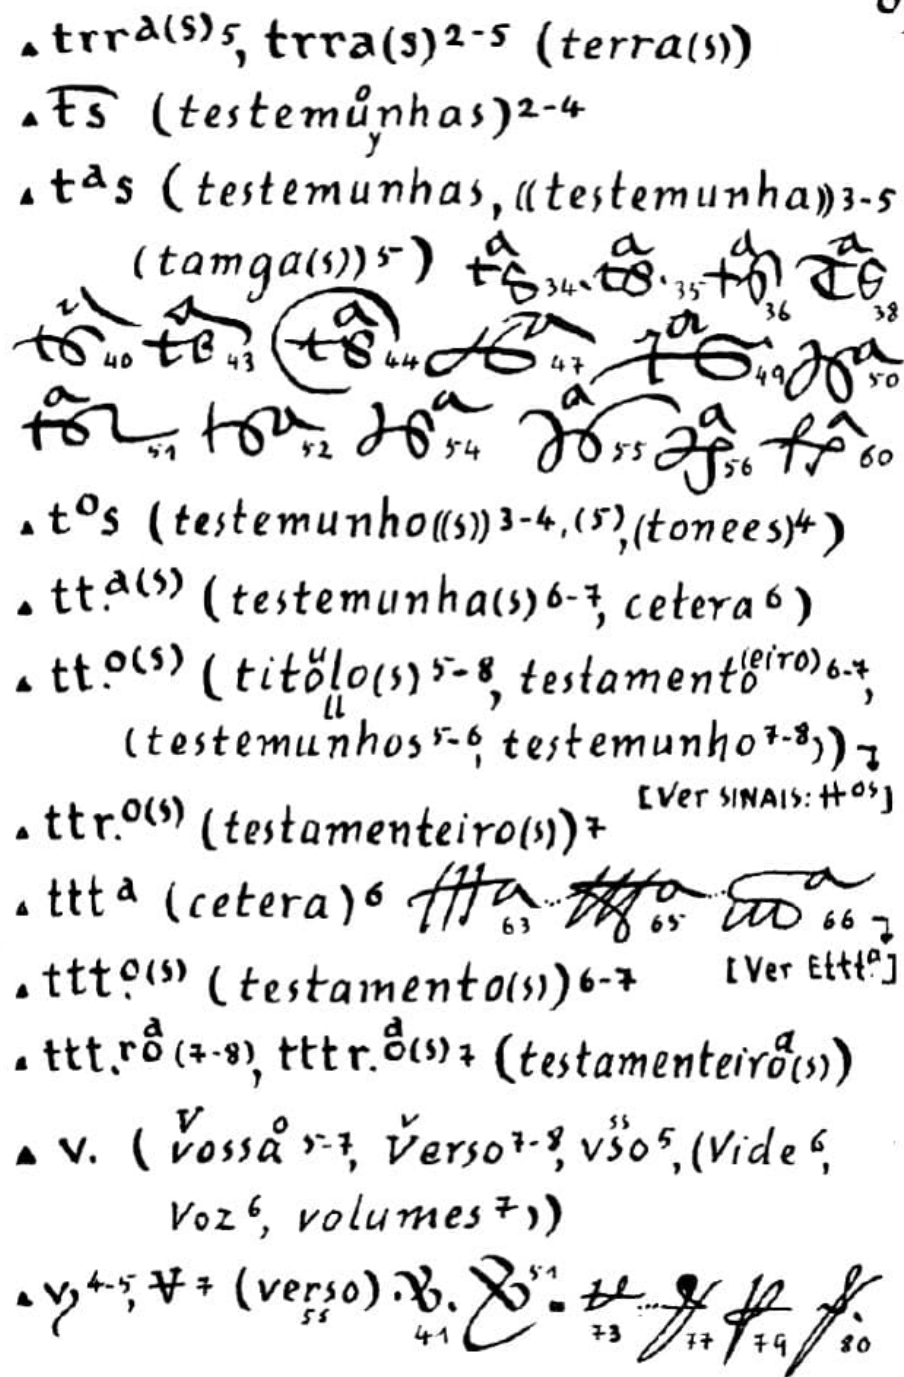 ▲ trrᵃ⁽ˢ⁾ 5, trra(s) 2-5 (terra(s))
▲ ts (testemunhas) 2-4
o
y
▲ tᵃs (testemunhas, ((testemunha)) 3-5
(tamga(s)) 5) tᵃs 34. tᵃs. 35 tᵃs 36 tᵃs 38
tᵃs 40 tᵃs 43 tᵃs 44 tsᵃ 47 tᵃs 49 tsᵃ 50
tᵃs 51 tsᵃ 52 tsᵃ 54 tᵃs 55 tᵃs 56 tsᵃ 60
▲ tᵒs (testemunho((s)) 3-4, (5), (tonees) 4)
▲ tt.ᵃ⁽ˢ⁾ (testemunha(s) 6-7, cetera 6)
▲ tt.ᵒ⁽ˢ⁾ (titolo(s) 5-8, testamento(eiro) 6-7,
u
ll
(testemunhos 5-6, testemunho 7-8))
[Ver SINAIS: ttᵒˢ]
▲ ttr.ᵒ⁽ˢ⁾ (testamenteiro(s)) 7
▲ tttᵃ (cetera) 6 tttᵃ 63 .. tttᵃ 65 .. tttᵃ 66
[Ver Ettt.ᵃ]
▲ ttt.ᵒ⁽ˢ⁾ (testamento(s)) 6-7
▲ ttt.ro (7-8), tttr.o(s) 7 (testamenteiro(s))
a a a
▲ v. (vossa 5-7, verso 7-8, vso 5, (Vide 6,
V o v ss
Voz 6, volumes 7))
▲ v 4-5, V 7 (verso) . v. 41 v 51. v 73 ... v 77 v 79 v. 80
ss